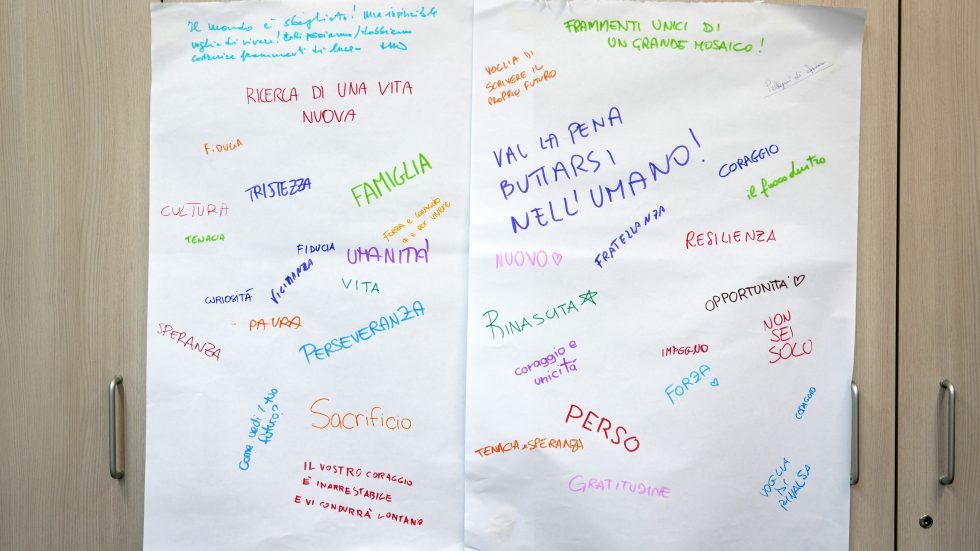 Il mondo è sbagliato! Ma
voglia di vivere!
costruire frammenti di luce
RICERCA DI UNA VITA
NUOVA
FIDUCIA
TRISTEZZA
FAMIGLIA
CULTURA
FORZA E CORAGGIO
VIVERE
TENACIA
FIDUCIA
UMANITÀ
VICINANZA
VITA
CURIOSITÀ
PAURA
SPERANZA
PERSEVERANZA
Come vedi il tuo
futuro?
Sacrificio
IL VOSTRO CORAGGIO
È INARRESTABILE
E VI CONDURRÀ LONTANO
FRAMMENTI UNICI DI
UN GRANDE MOSAICO!
VOGLIA DI
SCRIVERE IL
PROPRIO FUTURO
VAL LA PENA
BUTTARSI
NELL'UMANO!
CORAGGIO
il fuoco dentro
FRATELLANZA
RESILIENZA
NUOVO ♡
OPPORTUNITÀ ♡
RINASCITA ☆
NON
SEI
SOLO
coraggio e
unicità
IMPEGNO
FORZA ♡
CORAGGIO
PERSO
TENACIA e SPERANZA
GRATITUDINE
VOGLIA
DI
RIVALSA